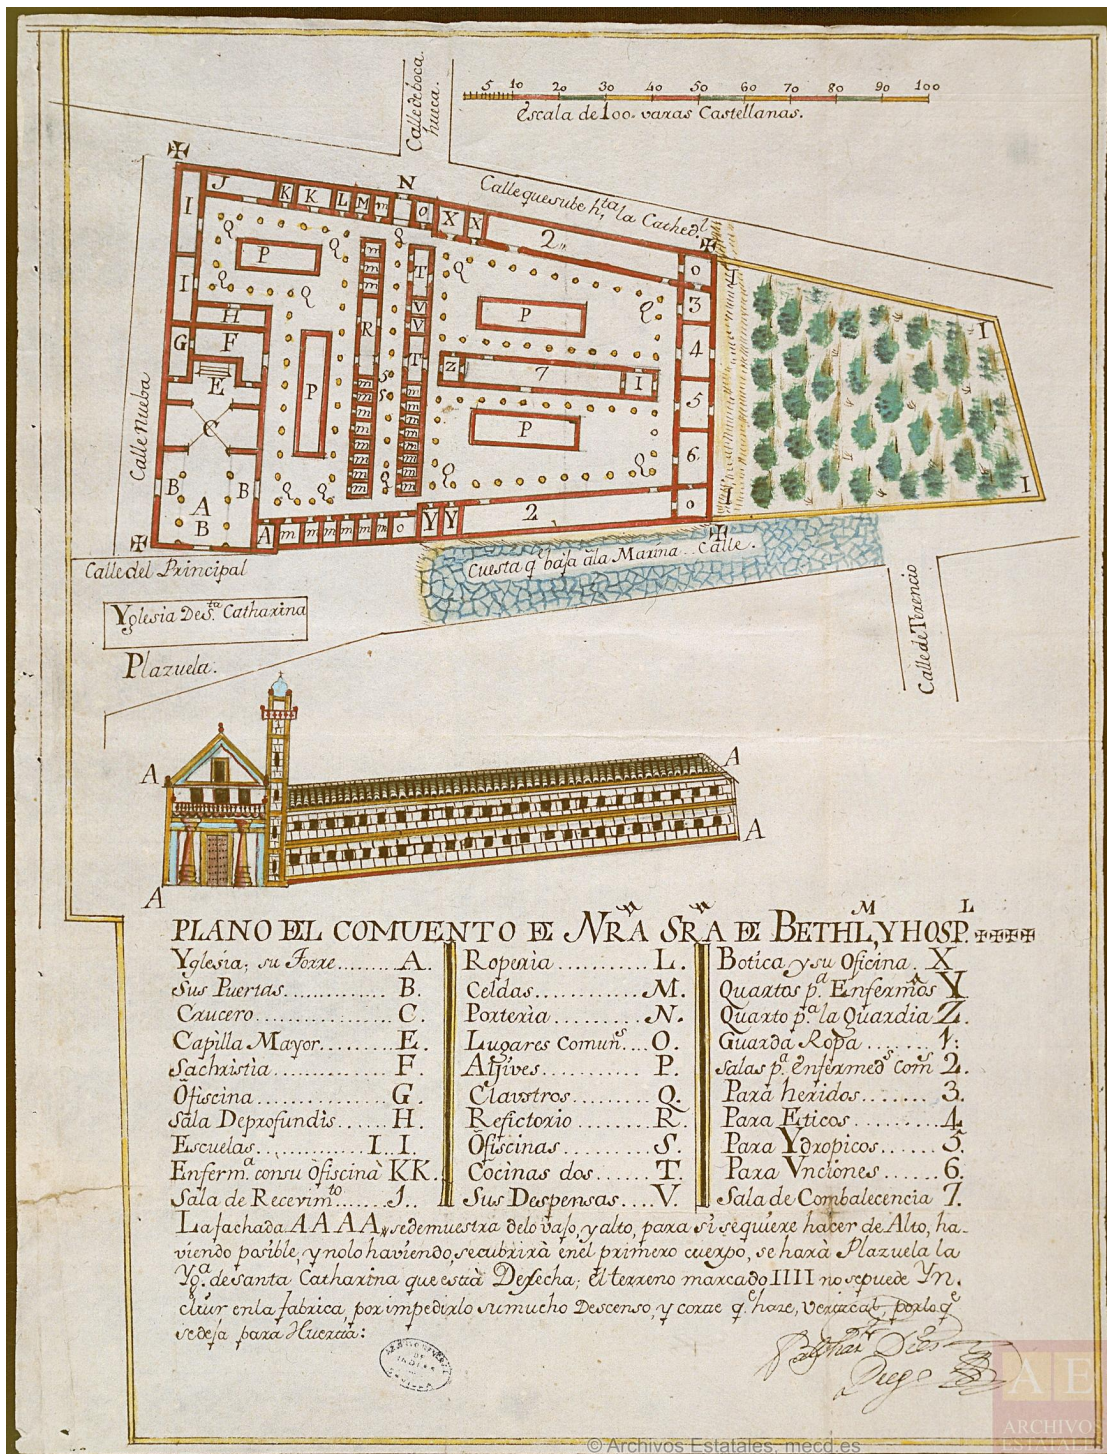 5 10 20 30 40 50 60 70 80 90 100
Escala de 100. varas Castellanas.
Calle de boca
hueca.
Calle que sube hta la Cathedl
N
J K K L M m o X X 2
I
I
H
G F
E
C
B B
A
B
P
P
Q Q Q Q Q Q Q
m m m
R
S S
m m m m m m m
T
V
V
T
m m m m m m m
Q P Q
Z 7 1
P
Q Q
O
3
4
5
6
O
I I
I I
A m m m m m m o Y Y 2
Calle Nueba
Calle del Principal
Cuesta qe baja a la Marina. Calle.
Yglesia De Sta Catharina
Plazuela.
Calle de Terencio
A A
A A
PLANO DEL COMUENTO DE NRA SRA DE BETHLM, Y HOSPL.
Yglesia; su Torre........ A.
Sus Puertas............. B.
Crucero.................. C.
Capilla Mayor......... E.
Sachristia............... F.
Ofiscina................. G.
Sala Deprofundis...... H.
Escuelas............. I. I.
Enferma. con su Ofiscina KK.
Sala de Recevimto....... J.
Roperia........... L.
Celdas............ M.
Porteria.......... N.
Lugares Comuns... O.
Aljives........... P.
Claustros......... Q.
Refictorio........ R.
Ofiscinas......... S.
Cocinas dos...... T.
Sus Despensas.... V.
Botica y su Oficina. X.
Quartos pa. Enfermos Y.
Quarto pa. la Guardia Z.
Guarda Ropa....... 1.
Salas pa. enfermeds coms 2.
Para heridos....... 3.
Para Eticos......... 4.
Para Ydropicos..... 5.
Para Vnciones..... 6.
Sala de Combalecencia 7.
La fachada AAAA, se demuestra de lo vajo, y alto, para si se quiere hacer de Alto, ha-
viendo posible, y no lo haviendo, se cubrirà en el primero cuerpo, se harà Plazuela la
Yga. de Santa Catharina que està Desecha; el terreno marcado IIII no se puede Yn.
cluir en la fabrica, por impedirlo su mucho Descenso, y corte qe. hace, por lo qe
se deja para Huerta:
Diego
ARCHIVO
DE
INDIAS
SEVILLA
AE
ARCHIVOS
© Archivos Estatales, mecd.es